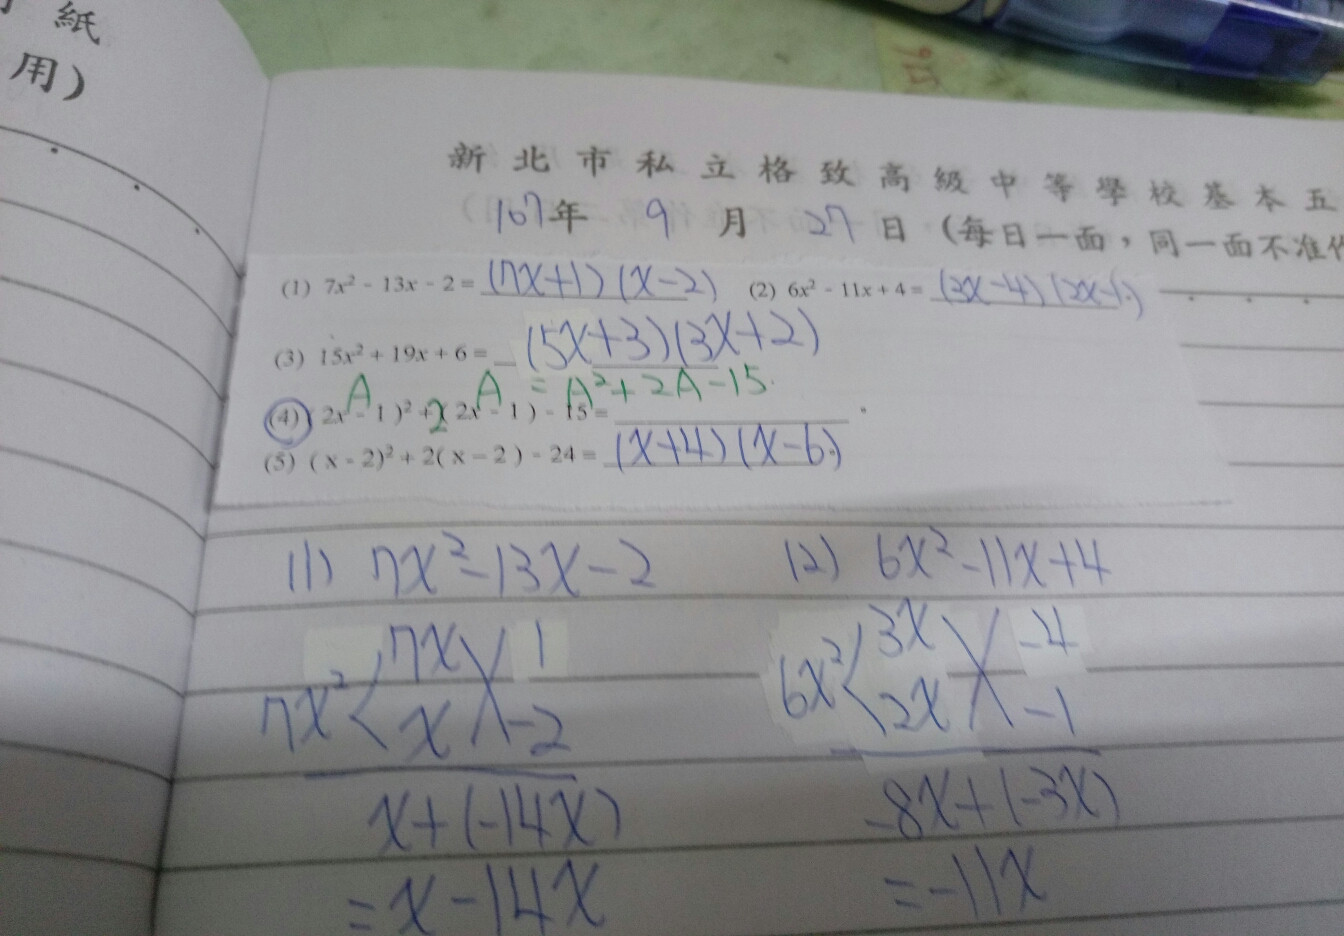 紙
用)
新北市私立格致高級中等學校基本五
107年 9月 27日 (每日一面，同一面不准作
(1) 7x² - 13x - 2 = (7x+1)(x-2) (2) 6x² - 11x + 4 = (3x-4)(2x-1)
(3) 15x² + 19x + 6 = (5x+3)(3x+2)
A A = A²+2A-15
(4) (2x - 1)² + 2(2x - 1) - 15 =
(5) (x - 2)² + 2(x - 2) - 24 = (x+4)(x-6)
(1) 7x²-13x-2 (2) 6x²-11x+4
7x 1 3x -4
7x² x -2 6x² 2x -1
x+(-14x) -8x+(-3x)
=x-14x =-11x